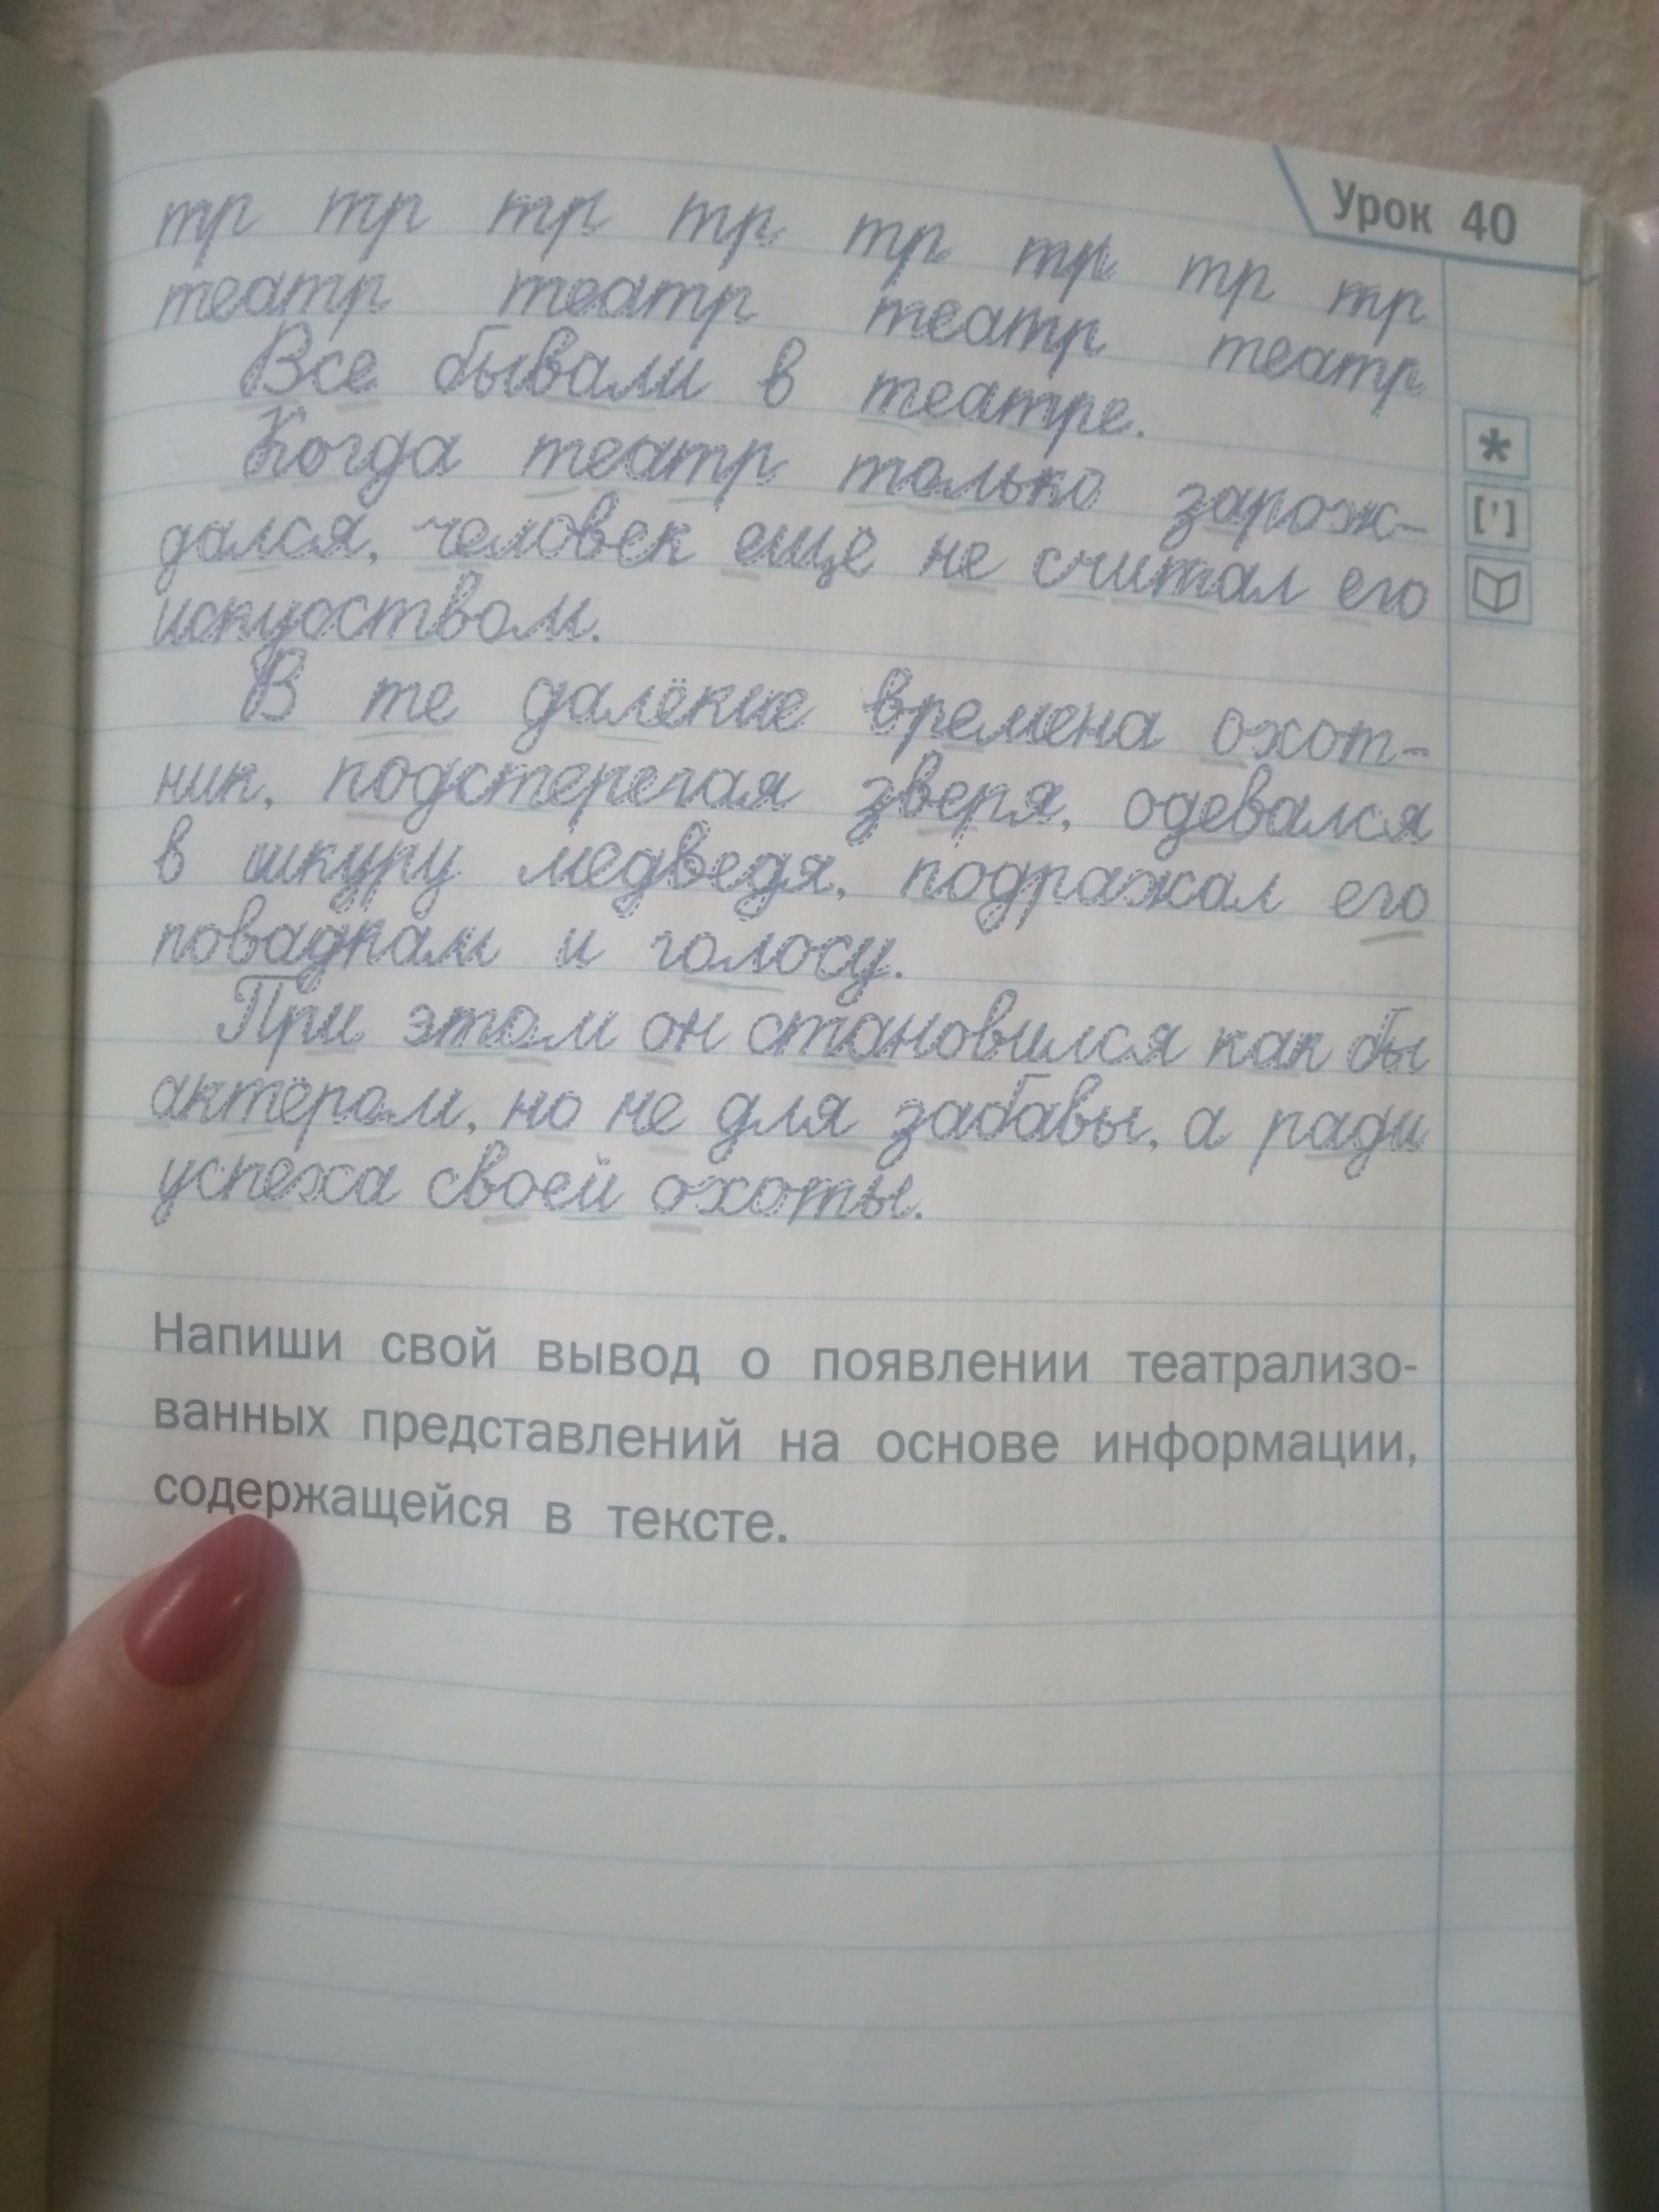 Урок 40
тр тр тр тр тр тр тр тр
театр театр театр театр
Все бывали в театре.
Когда театр только зарож-
дался, человек ещё не считал его
искусством.
В те далёкие времена охот-
ник, подстерегая зверя, одевался
в шкуру медведя, подражал его
повадкам и голосу.
При этом он становился как бы
актёром, но не для забавы, а ради
успеха своей охоты.
*
[']
Напиши свой вывод о появлении театрализо-
ванных представлений на основе информации,
содержащейся в тексте.